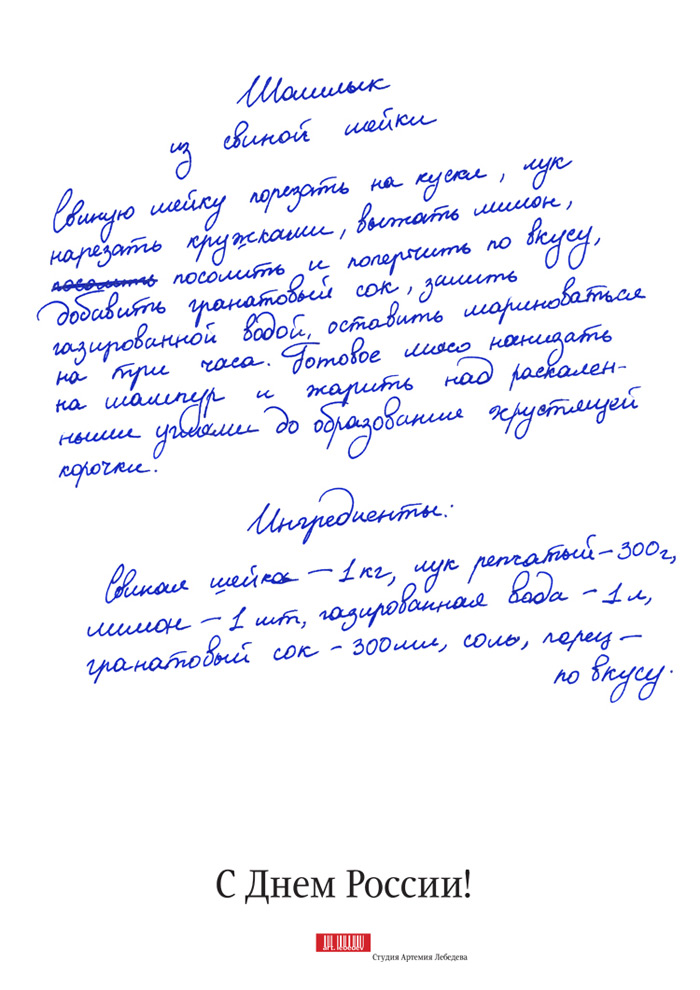 Шашлык
из свиной шейки
Свиную шейку порезать на куски, лук
нарезать кружками, выжать лимон,
посолить посолить и поперчить по вкусу,
добавить гранатовый сок, залить
газированной водой, оставить мариноваться
на три часа. Готовое мясо нанизать
на шампур и жарить над раскален-
ными углями до образования хрустящей
корочки.
Ингредиенты:
Свиная шейка – 1 кг, лук репчатый – 300 г,
лимон – 1 шт, газированная вода – 1 л,
гранатовый сок – 300 мл, соль, перец –
по вкусу.
С Днем России!
ART. LEBEDEV
Студия Артемия Лебедева